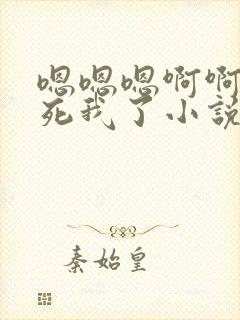 嗯嗯嗯啊啊
死我了小説
秦始皇